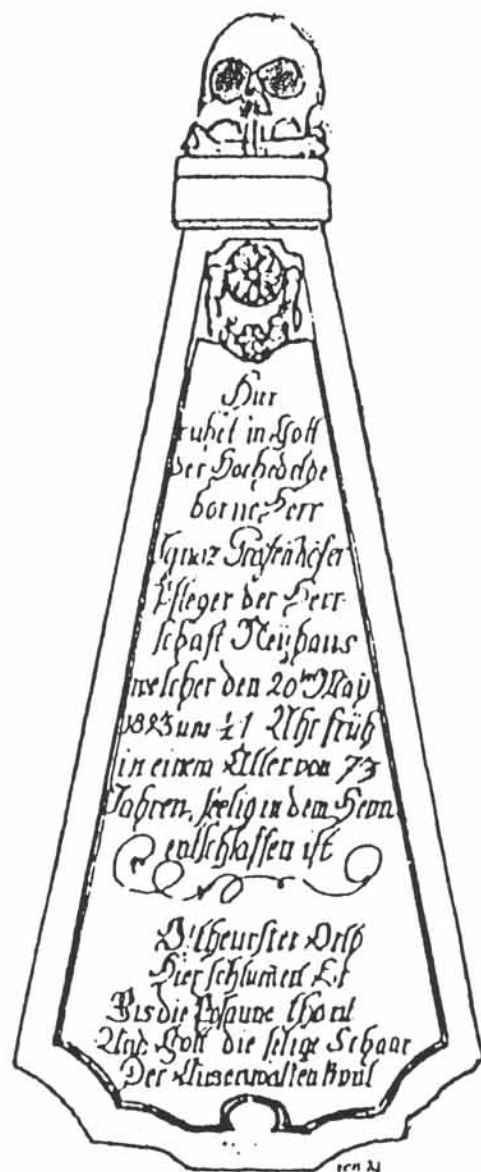 Hier
ruhet in Gott
Der Hochedelge
borne Herr
Ignaz Grafenhofer
Pfleger der Herr-
schaft Neÿhaus
welcher den 20ten May
um ½1 Uhr früh
in einem Alter von 73
Jahren, seelig in dem Herrn
entschlaffen ist
O! theurster
Hier schlumert Er
Bis die Posaune thönt
Und Gott die selige Schaar
Der Auserwälten